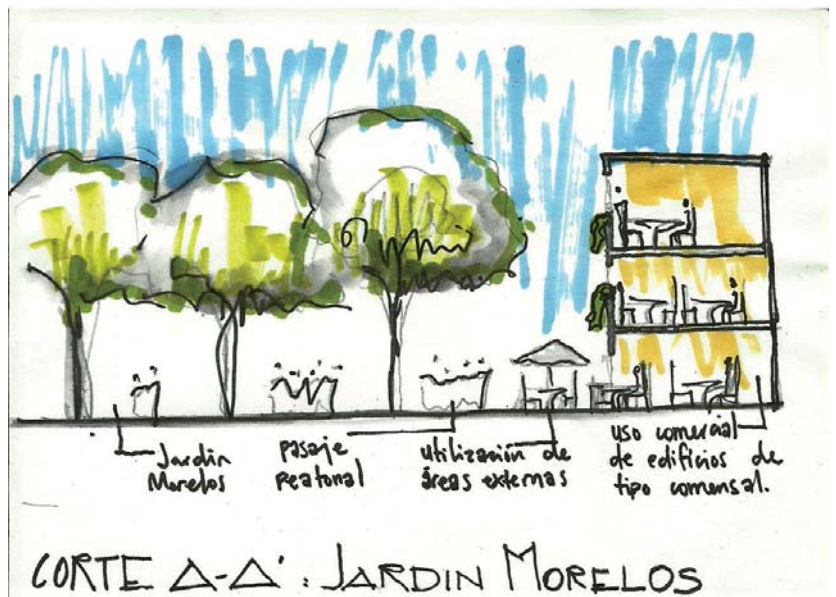 Jardin
Morelos
pasaje
peatonal
utilización de
áreas externas
uso comercial
de edificios de
tipo comensal.
CORTE A-A' : JARDIN MORELOS